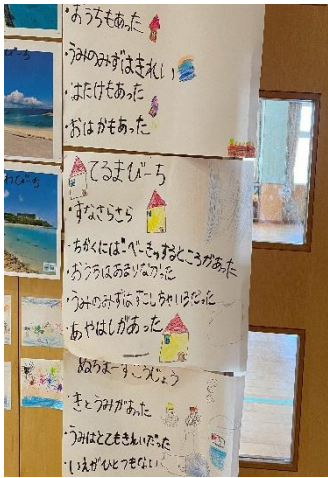 ・おうちもあった
・うみのみずはきれい
・はたけもあった
・おはかもあった
てるまびーち
・すなさらさら
・ちかくには"べーきゅするところがあった
・おうちはあまりなかった
・うみのみずはすこしちゃいろだった
・あやはしがあった
ぬちまーすこうじょう
・きとうみがあった
・うみはとてもきれいだった
・いえがひとつもない
びーち